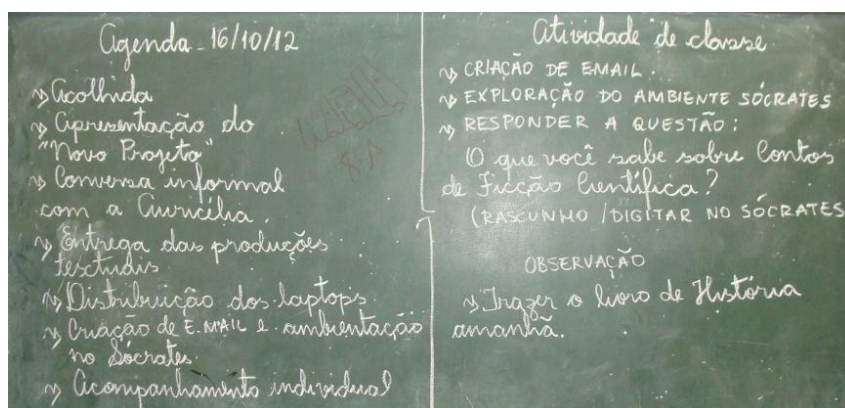 Agenda - 16/10/12
Acolhida
Apresentação do
"Novo Projeto"
Conversa informal
com a Auricélia.
Entrega das produções
textuais
Distribuição dos laptops
Criação de E.MAIL e ambientação
no Sócrates.
Acompanhamento individual
8A
Atividade de classe
CRIAÇÃO DE EMAIL.
EXPLORAÇÃO DO AMBIENTE SÓCRATES
RESPONDER A QUESTÃO:
O que você sabe sobre Contos
de Ficção Científica?
(RASCUNHO / DIGITAR NO SÓCRATES
OBSERVAÇÃO
Trazer o livro de História
amanhã.